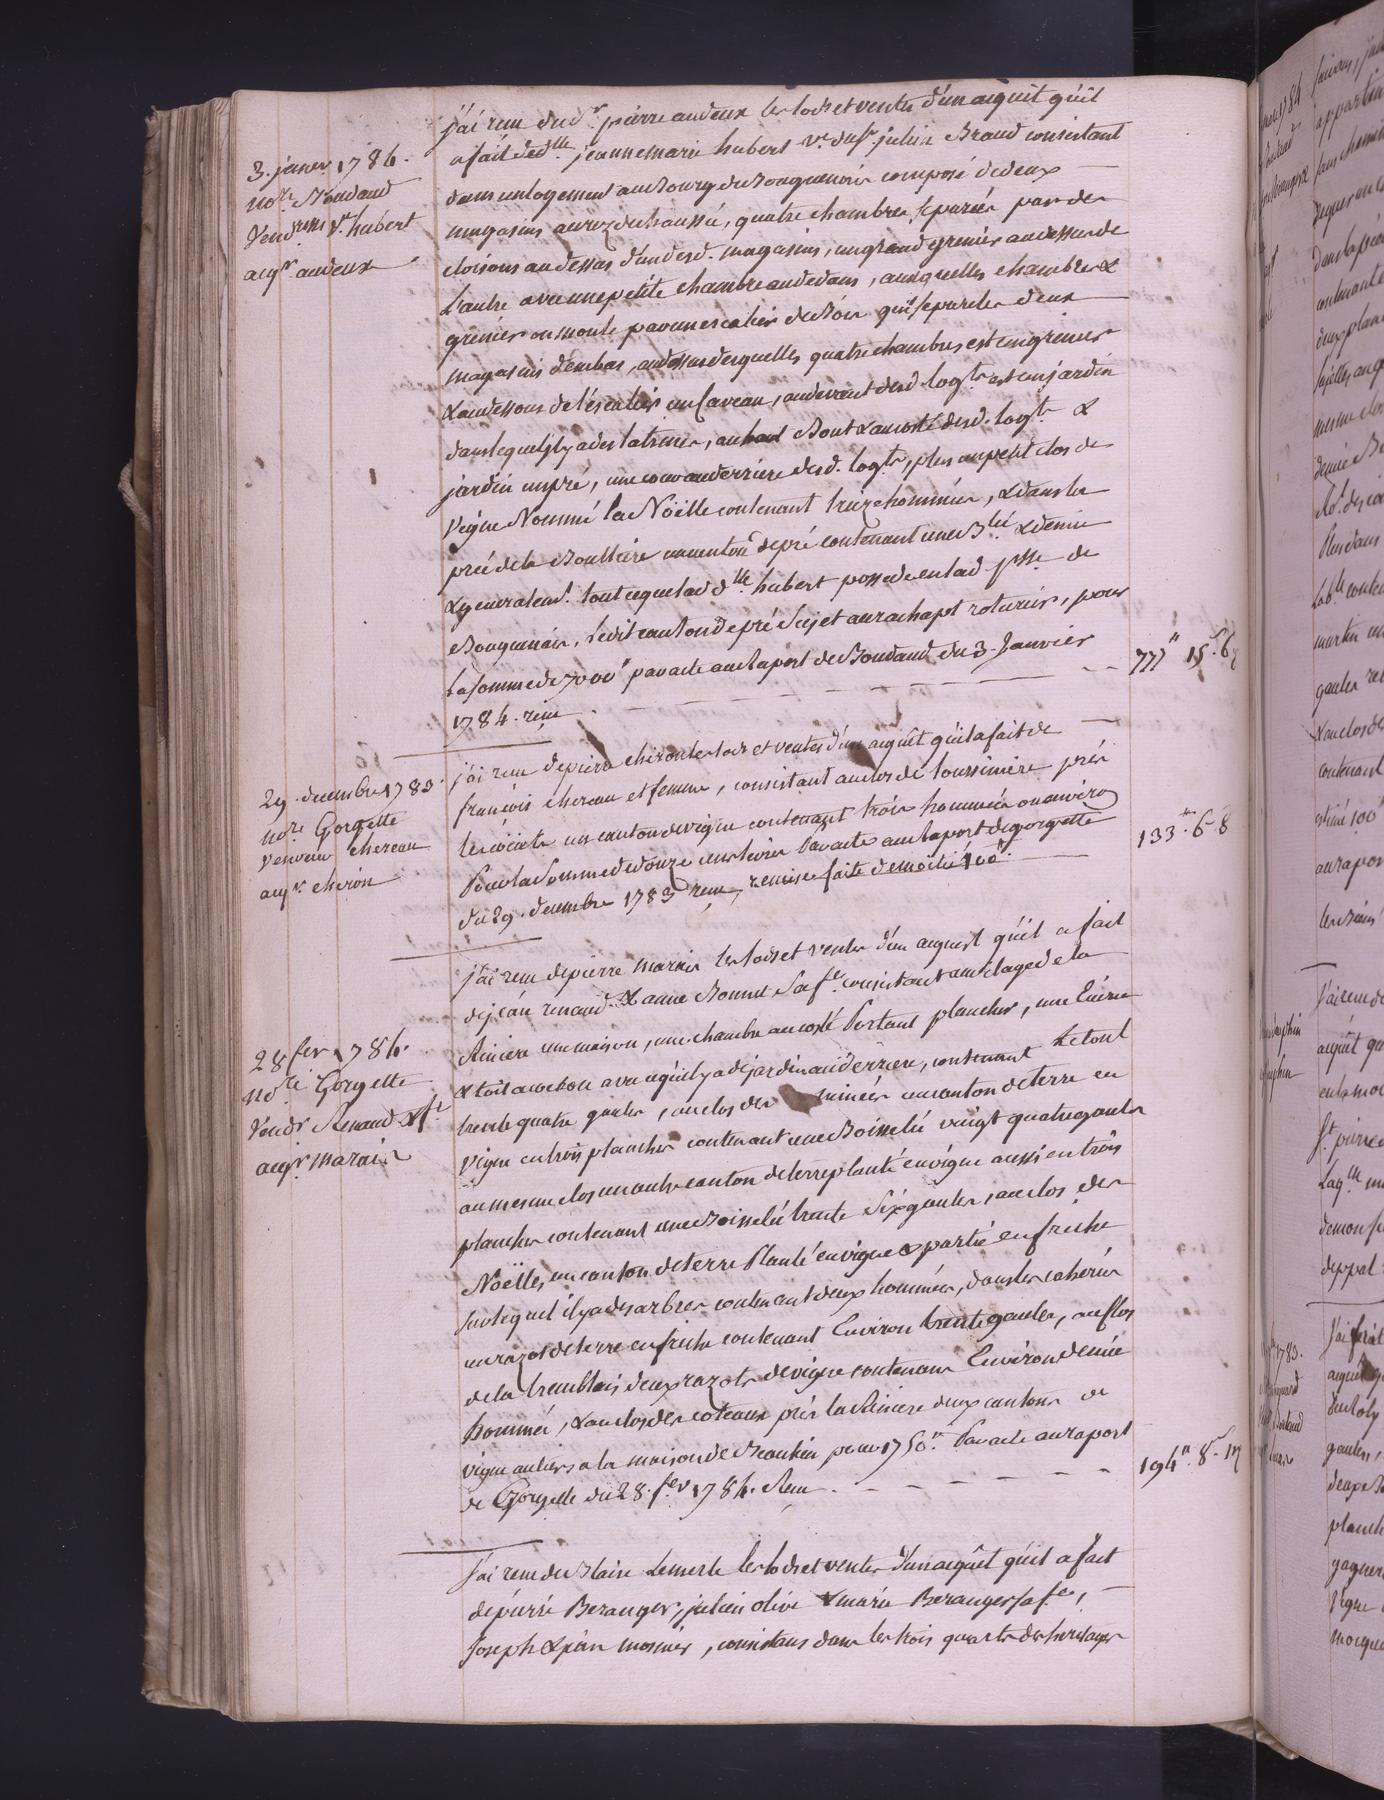 3. janer 1784.
no.re Boudaud
Vend.resse v.e hubert
acq.r audeux
j'ai reçu du d.r pierre audeux les lods et ventes d'un acquit qu'il
a fait de d.lle jeanne marie hubert v.e du s.r julien Braud consistant
dans un logement au Bourg de Bouguenais composé de deux
magasins au rez de chaussée, quatre chambres séparées par des
cloisons au dessus d'un desd. magasins, un grand grenier au dessus de
L'autre avec une petite chambre au dedans, auxquelles chambres &
grenier on monte par un escalier de Bois qui sépare les deux
magasins d'embas, au dessus desquelles quatre chambres est un grenier
& au dessous de l'escalier un Caveau, au devant desd. log.ts est un jardin
dans lequel il y a des latrines, au Bout & au costé desd. log.ts &
jardin un pré, une cour au derrière desd. log.ts, plus un petit clos de
Vigne Nommé la Noëlle contenant treize hommées, & dans les
prée de la Boultière un canton de pré contenant une B.lée & demie
& généralem.t tout ce que lad d.lle hubert possede en lad p.sse de
Bouguenais, Ledit canton de pré Sujet au rachapt roturier, pour
La somme de 7000.tt par acte au raport de Boudaud du 3. Janvier
1784. reçu
777.tt 15.s 6.d
29. decembre 1783.
no.re Gorgette
vendeur chereau
acq.r cheron
j'ai reçu de pierre cheron les lods et ventes d'un acquêt qu'il a fait de
françois chereau et femme, consistant au clos de toussinière près
un canton de vigne contenant trois hommées ou environ
Pour la Somme de douze cens livres Par acte au raport de gorgette
du 29. decembre 1783 reçu, remise faite de moitié
133.tt 6 8
28 fer 1784.
no.re Gorgette
Vend.r Renaud & f.e
acq.r marais
j'ai reçu de pierre marais les lods et ventes d'un acquest qu'il a fait
de jean renaud & anne Bonnet Sa f.e consistant au village de la
une maison, une chambre au costé Portant plancher, une
& toit à cochon avec ce qu'il y a de jardin au derrière, contenant Le tout
trente quatre gaules, au clos des un canton de terre en
vigne en trois planches contenant une Boisselée vingt quatre gaules
au mesme clos un autre canton de terre planté en vigne aussi en trois
planches contenant une Boisselée trente Six gaules, au clos des
Noëlles, un canton de terre Planté en vigne & partie en friche
sur lequel il y a des arbres contenant deux hommées, dans les
un razot de terre en friche contenant Environ trente gaules, au clos
de la tremblais deux razots de vigne contenans Environ demie
hommée, & au clos des coteaux près la deux cantons de
vigne au tiers a la maison de pour 1750.tt Par acte au raport
de Gorgette du 28. fev 1784. Reçu
194.tt 8.s
J'ai reçu de Blaise Lemerle les lods et ventes d'un acquêt qu'il a fait
de pierre Beranger, julien olive & marie Beranger sa f.e,
Joseph & jean mosnier, consistans dans les trois quarts des heritages